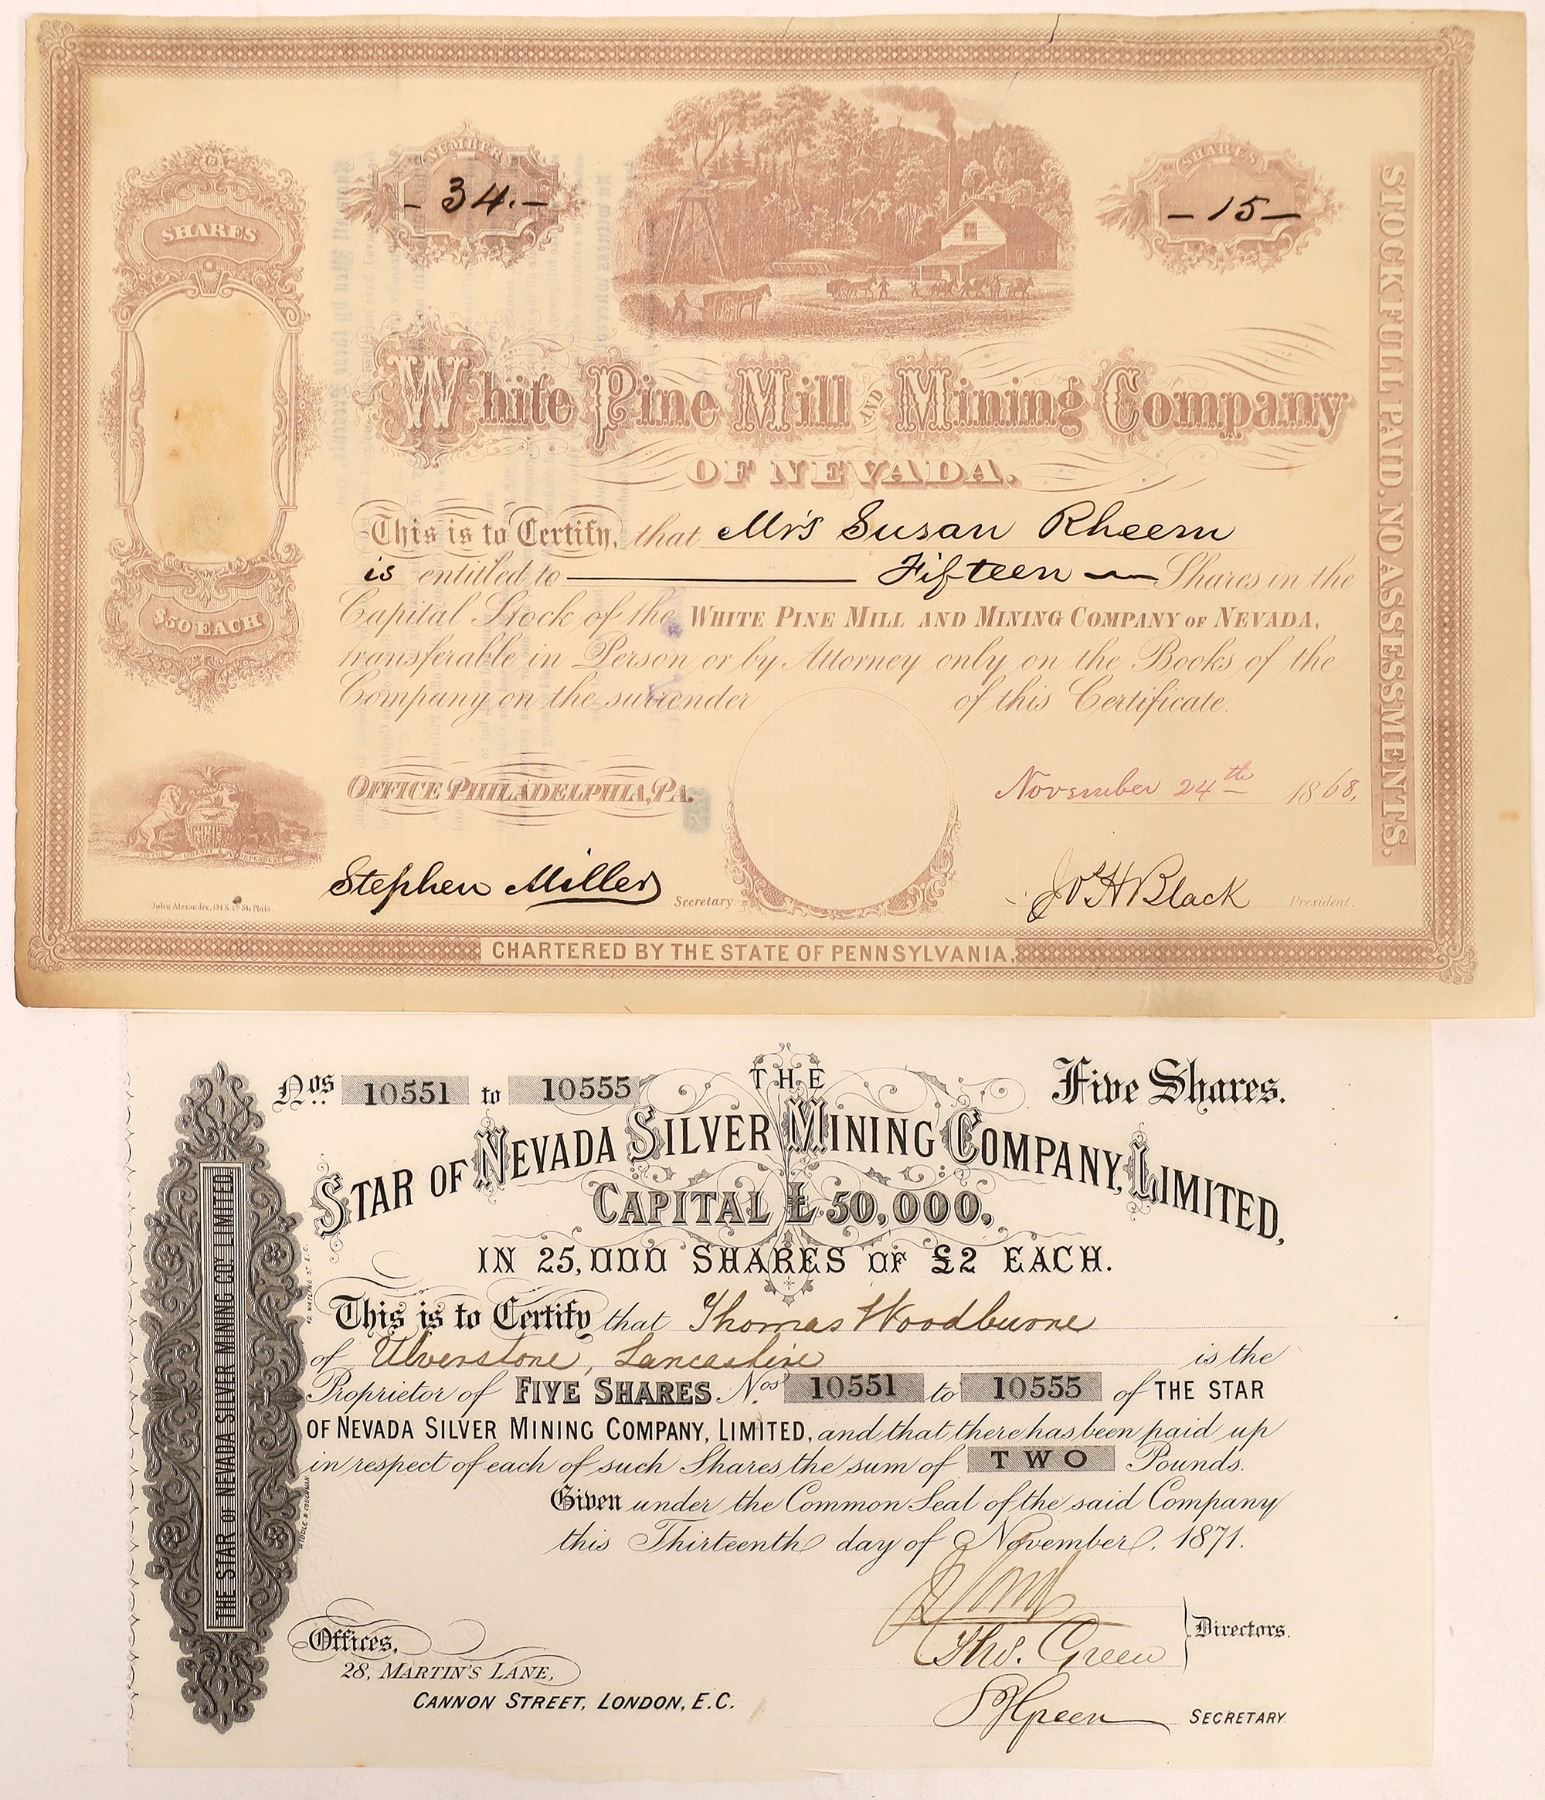 NUMBER
- 34. -
SHARES
- 15 -
SHARES
$50 EACH
STOCK FULL PAID, NO ASSESSMENTS.
White Pine Mill AND Mining Company
OF NEVADA.
This is to Certify, that Mrs Susan Rheem
is entitled to Fifteen Shares in the
Capital Stock of the WHITE PINE MILL AND MINING COMPANY OF NEVADA,
transferable in Person or by Attorney only on the Books of the
Company on the surrender of this Certificate.
OFFICE PHILADELPHIA, PA.
November 24th 1868.
Stephen Miller Secretary
Jos H Black President.
John Alexander, 134 S. 3d St. Phila.
CHARTERED BY THE STATE OF PENNSYLVANIA.
Nos. 10551 to 10555
Five Shares.
THE
STAR OF NEVADA SILVER MINING COMPANY, LIMITED,
CAPITAL £50,000.
IN 25,000 SHARES OF £2 EACH.
This is to Certify that Thomas Woodburne
of Ulverstone, Lancashire is the
Proprietor of FIVE SHARES Nos. 10551 to 10555 of THE STAR
OF NEVADA SILVER MINING COMPANY, LIMITED, and that there has been paid up
in respect of each of such Shares, the sum of TWO Pounds.
Given under the Common Seal of the said Company
this Thirteenth day of November, 1871.
Thos. Green
Directors.
Offices,
28, MARTIN'S LANE,
CANNON STREET, LONDON, E.C.
Green
SECRETARY
THE STAR OF NEVADA SILVER MINING COY. LIMITED